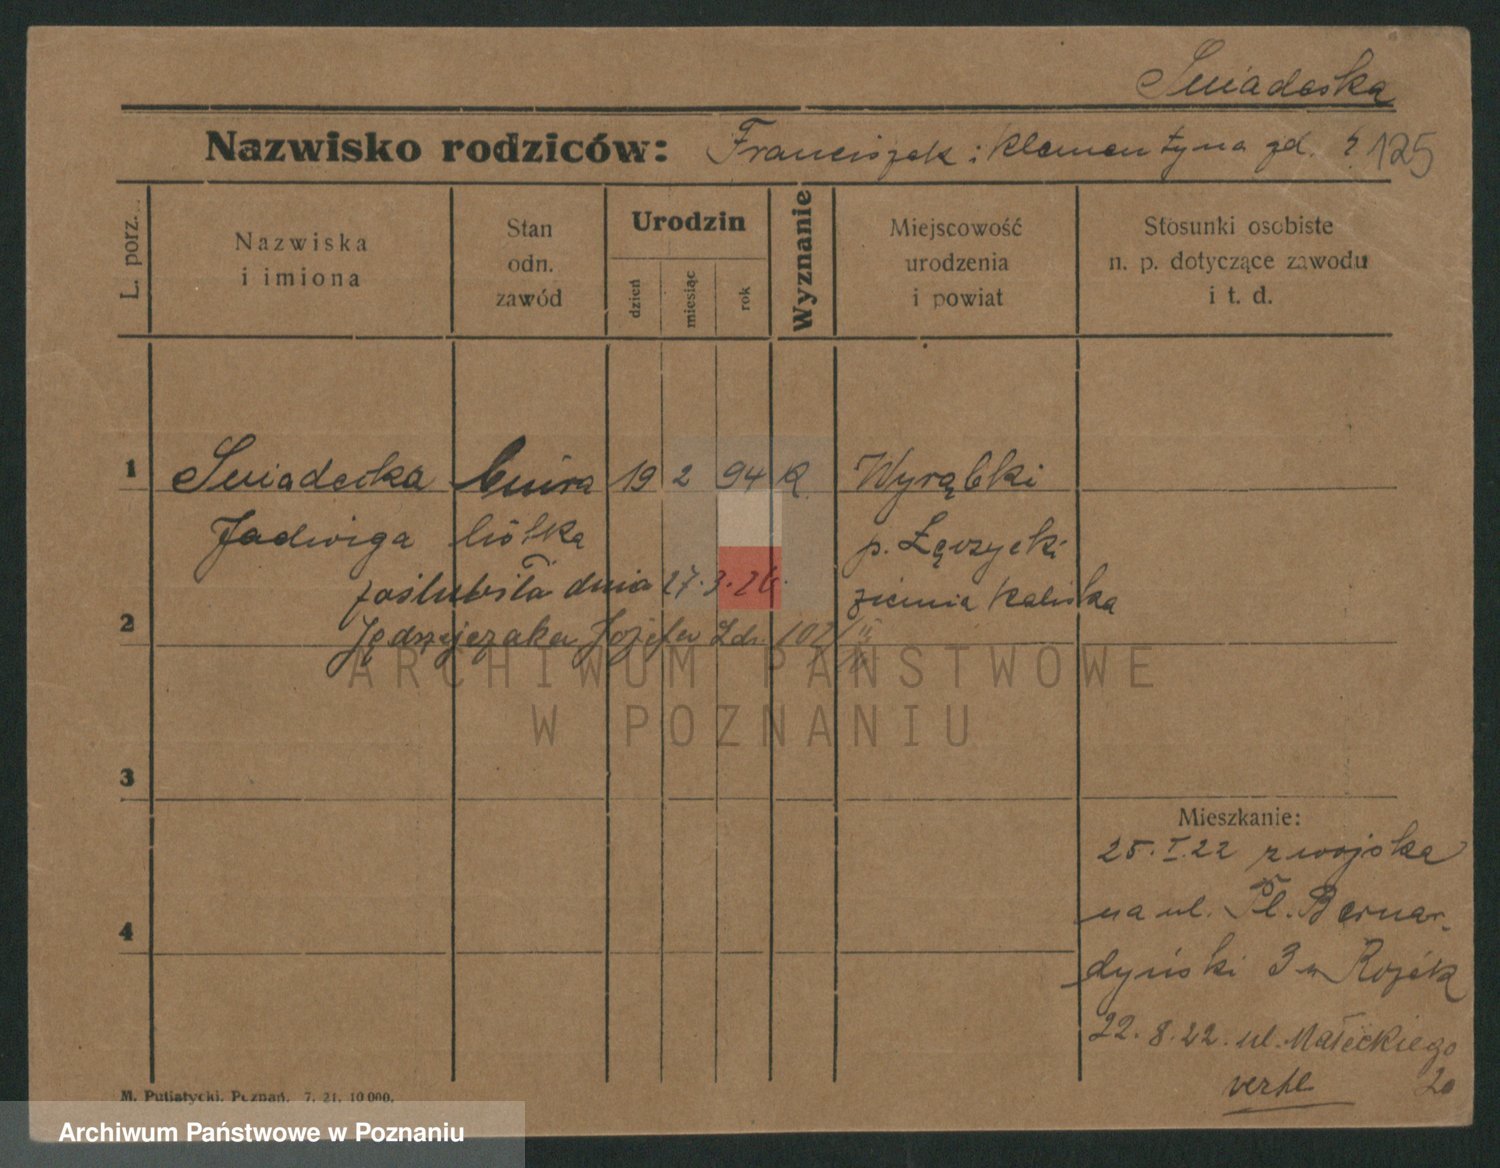 Śniadecka
Nazwisko rodziców: Franciszek i Klementyna zd. ? 125
L. porz.
Nazwiska
i imiona
Stan
odn.
zawód
Urodzin
dzień
miesiąc
rok
Wyznanie
Miejscowość
urodzenia
i powiat
Stosunki osobiste
n. p. dotyczące zawodu
i t. d.
1 Śniadecka córa 19 2 94 K. Wyrąbki
Jadwiga p. Łęczycki
zaślubiła dnia 27.3.26. ziemia Kaliska
2 Jędrzejczaka Józefa
ARCHIWUM PAŃSTWOWE
W POZNANIU
3
Mieszkanie:
25.I.22 z wojska
na ul. Pl. Bernar-
4
dyński 3 Rożek
22.8.22. ul. Małeckiego
verte 20
M. Putiatycki, Poznań. 7. 21. 10 000.
Archiwum Państwowe w Poznaniu